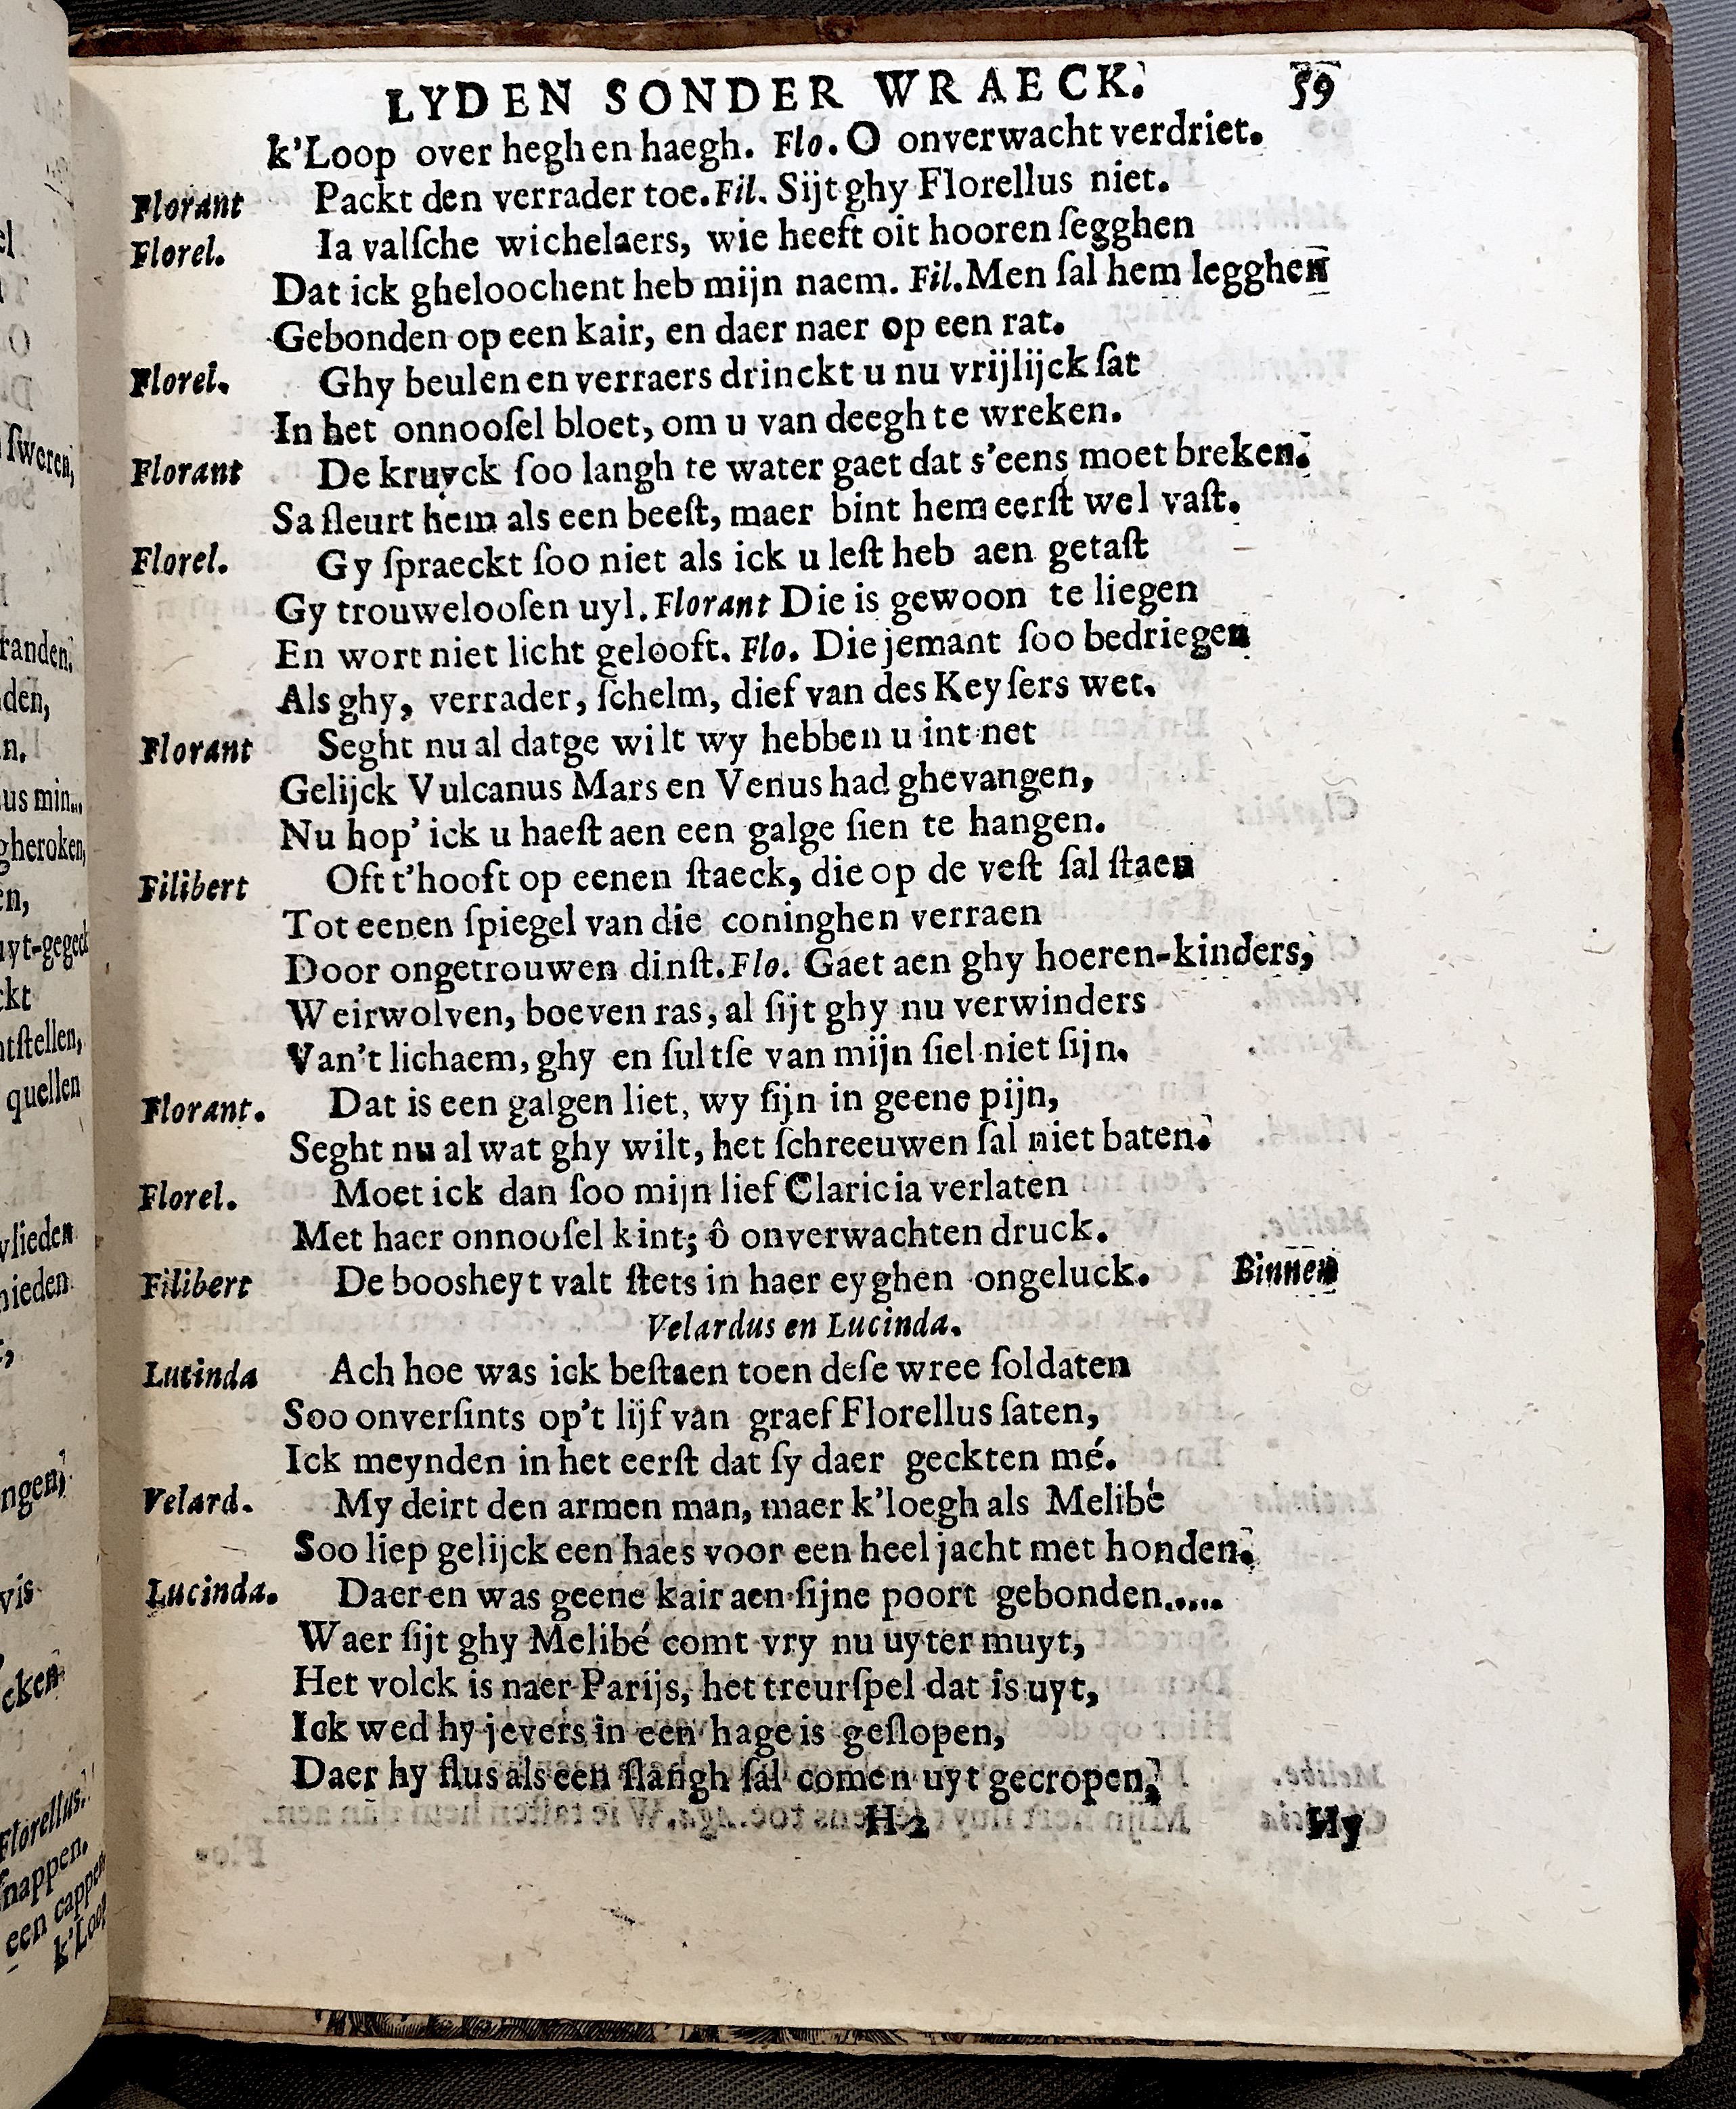 LYDEN SONDER WRAECK. 59
k'Loop over hegh en haegh. Flo. O onverwacht verdriet.
Florant Packt den verrader toe. Fil. Sijt ghy Florellus niet.
Florel. Ia valſche wichelaers, wie heeft oit hooren ſegghen
Dat ick gheloochent heb mijn naem. Fil. Men ſal hem legghen
Gebonden op een kair, en daer naer op een rat.
Florel. Ghy beulen en verraers drinckt u nu vrijlijck ſat
In het onnooſel bloet, om u van deegh te wreken.
Florant De kruyck ſoo langh te water gaet dat s'eens moet breken.
Sa ſleurt hem als een beeſt, maer bint hem eerſt wel vaſt.
Florel. Gy ſpraeckt ſoo niet als ick u leſt heb aen getaſt
Gy trouwelooſen uyl. Florant Die is gewoon te liegen
En wort niet licht gelooft. Flo. Die jemant ſoo bedriegen
Als ghy, verrader, ſchelm, dief van des Keyſers wet.
Florant Seght nu al datge wilt wy hebben u int net
Gelijck Vulcanus Mars en Venus had ghevangen,
Nu hop' ick u haeſt aen een galge ſien te hangen.
Filibert Oft t'hooft op eenen ſtaeck, die op de veſt ſal ſtaen
Tot eenen ſpiegel van die coninghen verraen
Door ongetrouwen dinſt. Flo. Gaet aen ghy hoeren-kinders,
Weirwolven, boeven ras, al ſijt ghy nu verwinders
Van't lichaem, ghy en ſultſe van mijn ſiel niet ſijn.
Florant. Dat is een galgen liet, wy ſijn in geene pijn,
Seght nu al wat ghy wilt, het ſchreeuwen ſal niet baten.
Florel. Moet ick dan ſoo mijn lief Claricia verlaten
Met haer onnooſel kint; ô onverwachten druck.
Filibert De boosheyt valt ſtets in haer eyghen ongeluck. Binnen
Velardus en Lucinda.
Lucinda Ach hoe was ick beſtaen toen deſe wree ſoldaten
Soo onverſints op't lijf van graef Florellus ſaten,
Ick meynden in het eerſt dat ſy daer geckten mé.
Velard. My deirt den armen man, maer k'loegh als Melibé
Soo liep gelijck een haes voor een heel jacht met honden.
Lucinda. Daer en was geene kair aen ſijne poort gebonden.....
Waer ſijt ghy Melibé comt vry nu uyter muyt,
Het volck is naer Parijs, het treurſpel dat is uyt,
Ick wed hy jevers in een hage is geſlopen,
Daer hy flus als een ſlangh ſal comen uyt gecropen,
H 2 Hy